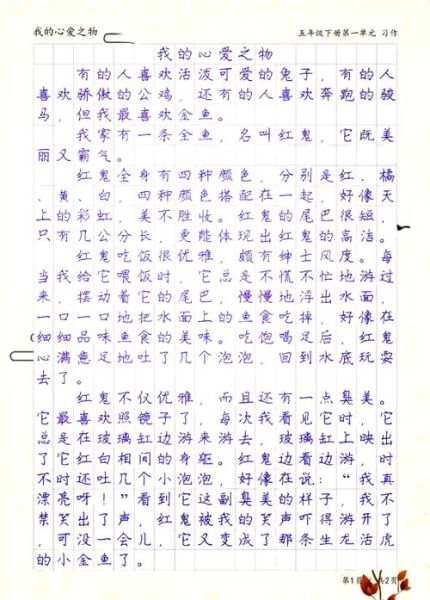 我的心爱之物
五年级下册第一单元 习作
我的心爱之物
有的人喜欢活泼可爱的兔子，有的人
喜欢骄傲的公鸡，还有的人喜欢奔跑的骏
马，但我最喜欢金鱼。
我家有一条金鱼，名叫红鬼，它既美
丽又霸气。
红鬼全身有四种颜色，分别是红、橘
、黄、白，四种颜色搭配在一起，好像天
上的彩虹，美不胜收。红鬼的尾巴很短，
只有几公分长，更能体现出红鬼的高洁。
红鬼吃饭很优雅，颇有绅士风度。每
当我给它喂饭时，它总是不慌不忙地游过
来，摆动着它的尾巴，慢慢地浮出水面，
一口一口地把水面上的鱼食吃掉，好像在
细细品味鱼食的美味。吃饱喝足后，红鬼
心满意足地吐了几个泡泡，回到水底玩耍
去了。
红鬼不仅优雅，而且还有一点臭美。
它最喜欢照镜子了，每次我看见它时，它
总是在玻璃缸边游来游去，玻璃缸上映出
了它红白相间的身躯。红鬼边看边游，时
不时还吐几个小泡泡，好像在说：“我真
漂亮呀！”看到它这副臭美的样子，我不
禁笑出了声，红鬼被我的笑声吓得游开了
，可没一会儿，它又变成了那条生龙活虎
的小金鱼了。
第1页 共2页